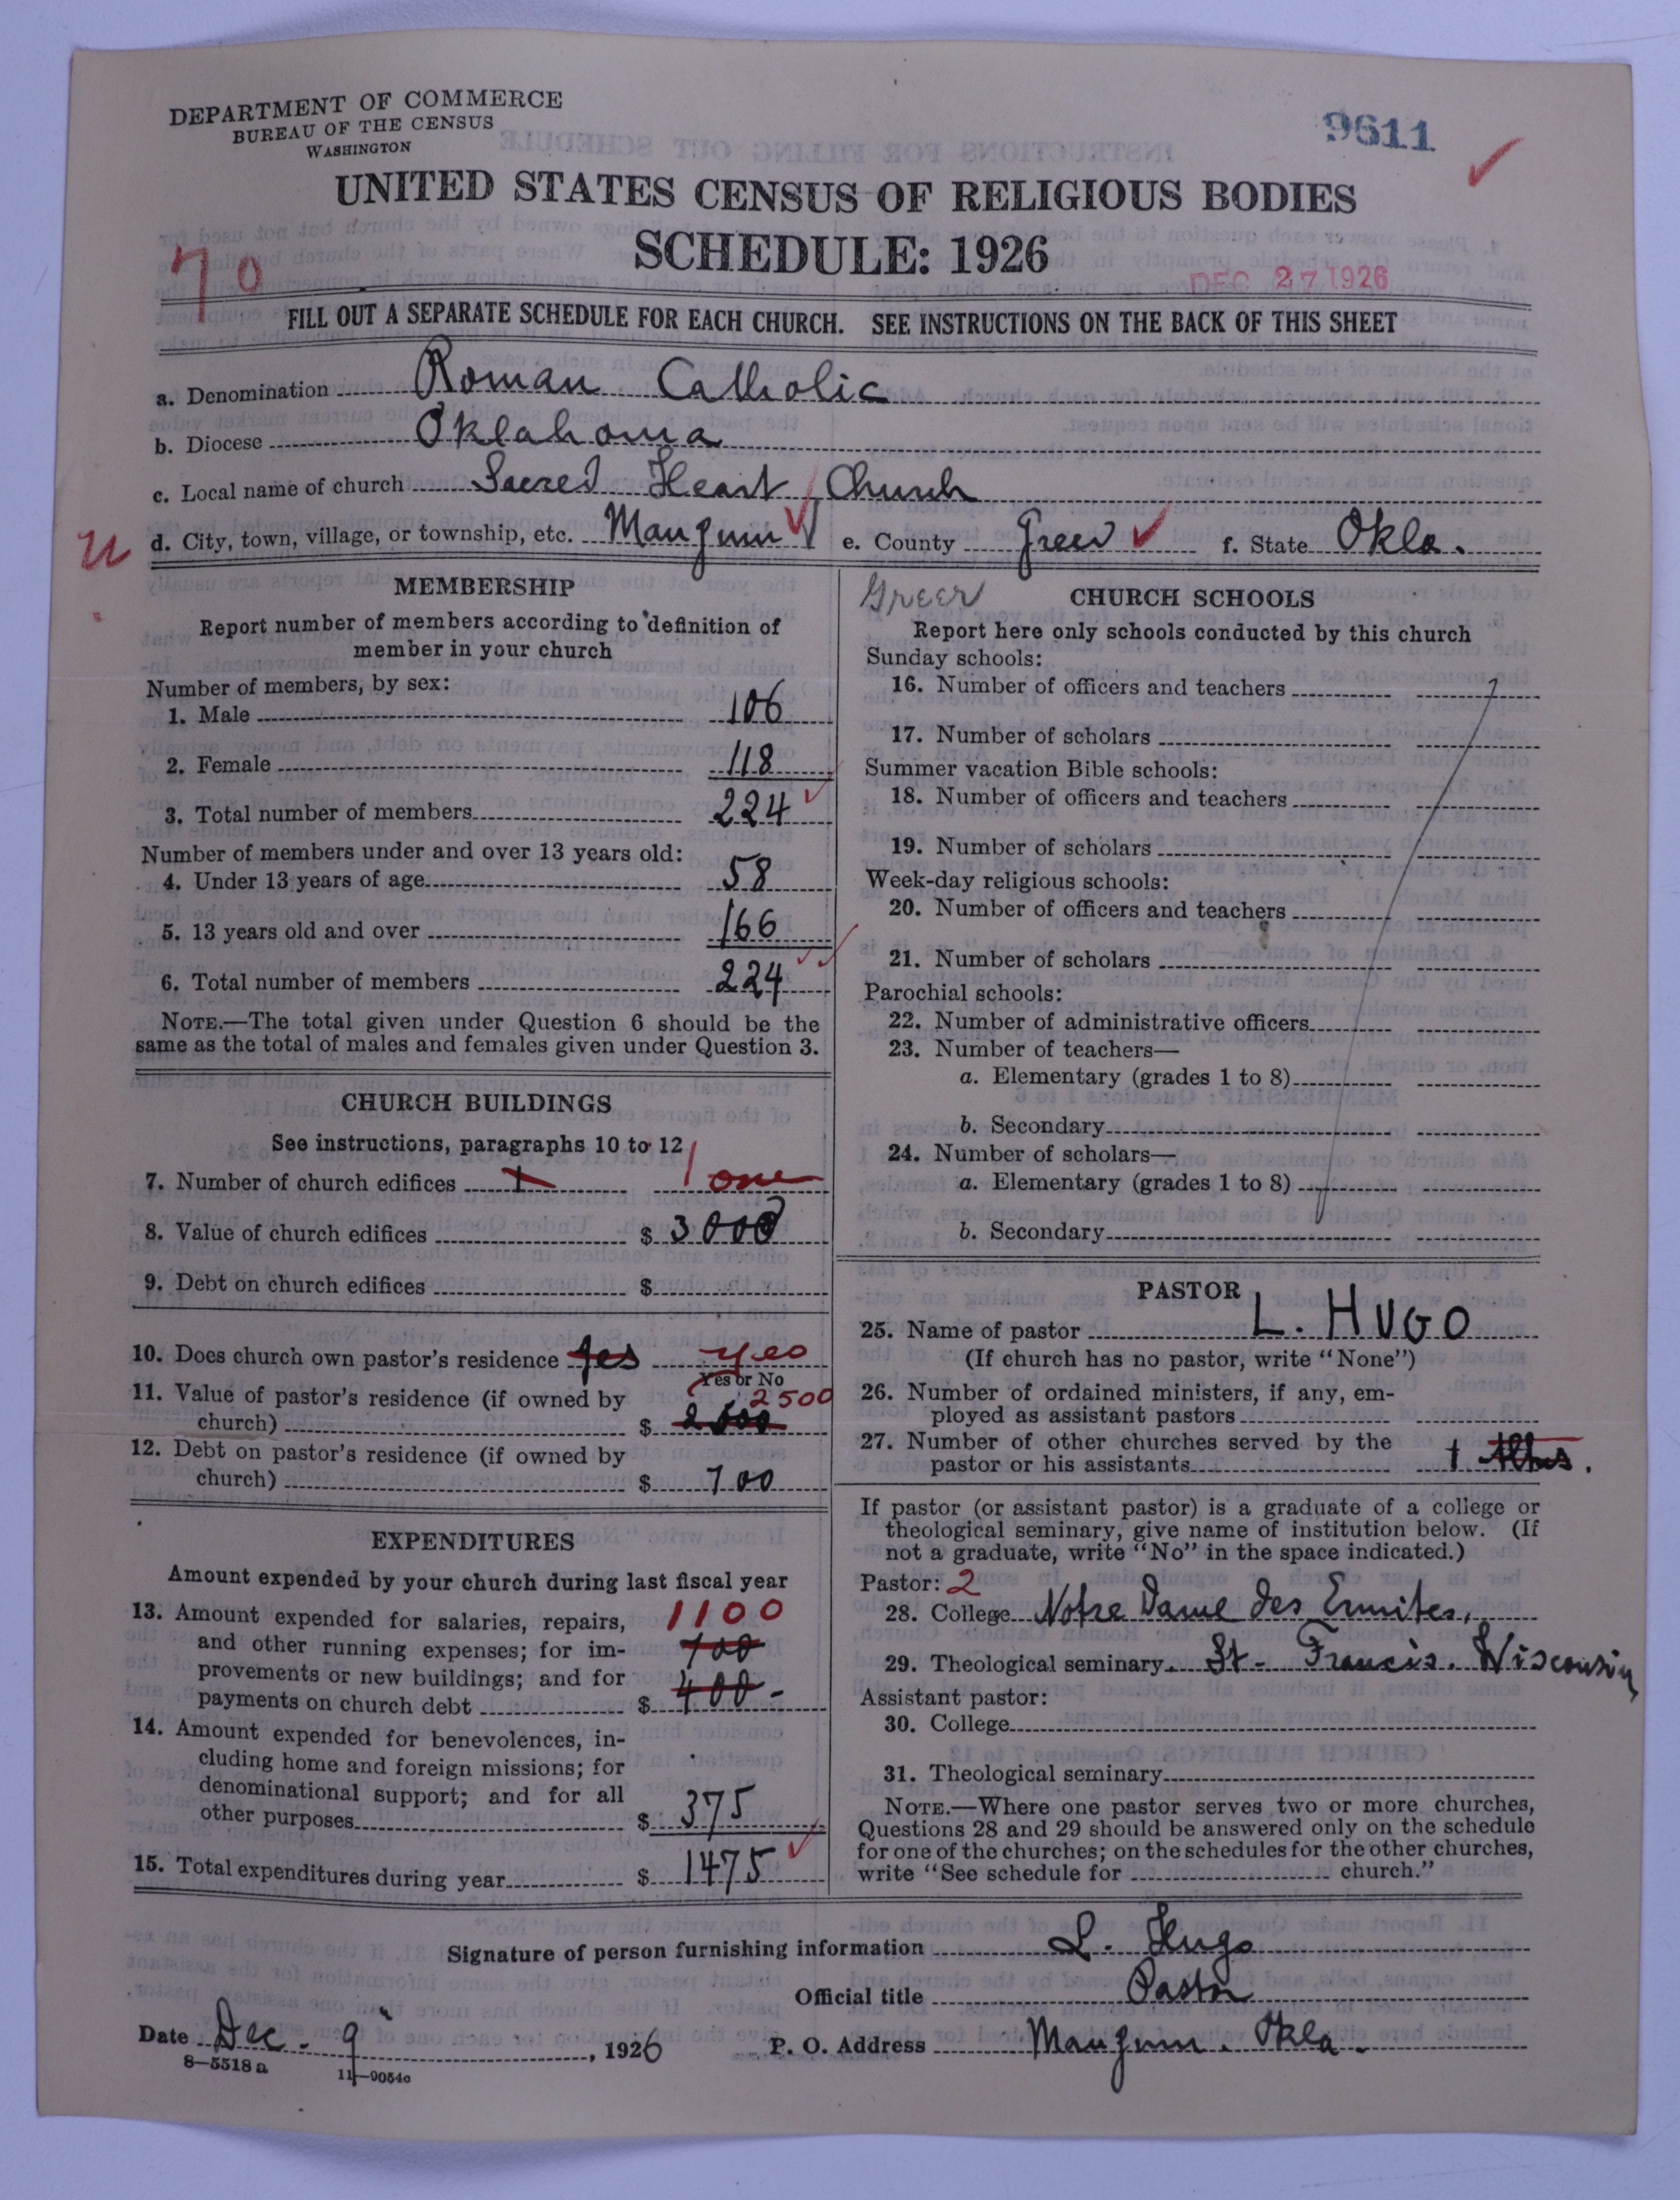 DEPARTMENT OF COMMERCE
BUREAU OF THE CENSUS
WASHINGTON
9611
UNITED STATES CENSUS OF RELIGIOUS BODIES
SCHEDULE: 1926
70
DEC 27 1926
FILL OUT A SEPARATE SCHEDULE FOR EACH CHURCH. SEE INSTRUCTIONS ON THE BACK OF THIS SHEET
a. Denomination Roman Catholic
b. Diocese Oklahoma
c. Local name of church Sacred Heart Church
d. City, town, village, or township, etc. Mangum e. County Greer f. State Okla.
MEMBERSHIP
Report number of members according to definition of
member in your church
Number of members, by sex:
1. Male 106
2. Female 118
3. Total number of members 224
Number of members under and over 13 years old:
4. Under 13 years of age 58
5. 13 years old and over 166
6. Total number of members 224
NOTE.—The total given under Question 6 should be the
same as the total of males and females given under Question 3.
CHURCH BUILDINGS
See instructions, paragraphs 10 to 12
7. Number of church edifices 1 1 one
8. Value of church edifices $ 3000
9. Debt on church edifices $
10. Does church own pastor's residence yes yes
Yes or No
11. Value of pastor's residence (if owned by 2500
church) $ 2500
12. Debt on pastor's residence (if owned by
church) $ 700
EXPENDITURES
Amount expended by your church during last fiscal year
13. Amount expended for salaries, repairs, 1100
and other running expenses; for im- 700
provements or new buildings; and for
payments on church debt $ 400-
14. Amount expended for benevolences, in-
cluding home and foreign missions; for
denominational support; and for all
other purposes $ 375
15. Total expenditures during year $ 1475
Greer
CHURCH SCHOOLS
Report here only schools conducted by this church
Sunday schools:
16. Number of officers and teachers
17. Number of scholars
Summer vacation Bible schools:
18. Number of officers and teachers
19. Number of scholars
Week-day religious schools:
20. Number of officers and teachers
21. Number of scholars
Parochial schools:
22. Number of administrative officers
23. Number of teachers—
a. Elementary (grades 1 to 8)
b. Secondary
24. Number of scholars—
a. Elementary (grades 1 to 8)
b. Secondary
PASTOR
25. Name of pastor L. HUGO
(If church has no pastor, write "None")
26. Number of ordained ministers, if any, em-
ployed as assistant pastors
27. Number of other churches served by the
pastor or his assistants 1
If pastor (or assistant pastor) is a graduate of a college or
theological seminary, give name of institution below. (If
not a graduate, write "No" in the space indicated.)
Pastor: 2
28. College Notre Dame des Ermites,
29. Theological seminary St- Francis. Wisconsin
Assistant pastor:
30. College
31. Theological seminary
NOTE.—Where one pastor serves two or more churches,
Questions 28 and 29 should be answered only on the schedule
for one of the churches; on the schedules for the other churches,
write "See schedule for church."
Signature of person furnishing information L. Hugo
Official title Pastor
Date Dec. 9, 1926 P. O. Address Mangum. Okla.
8—5518 a
11—9054c